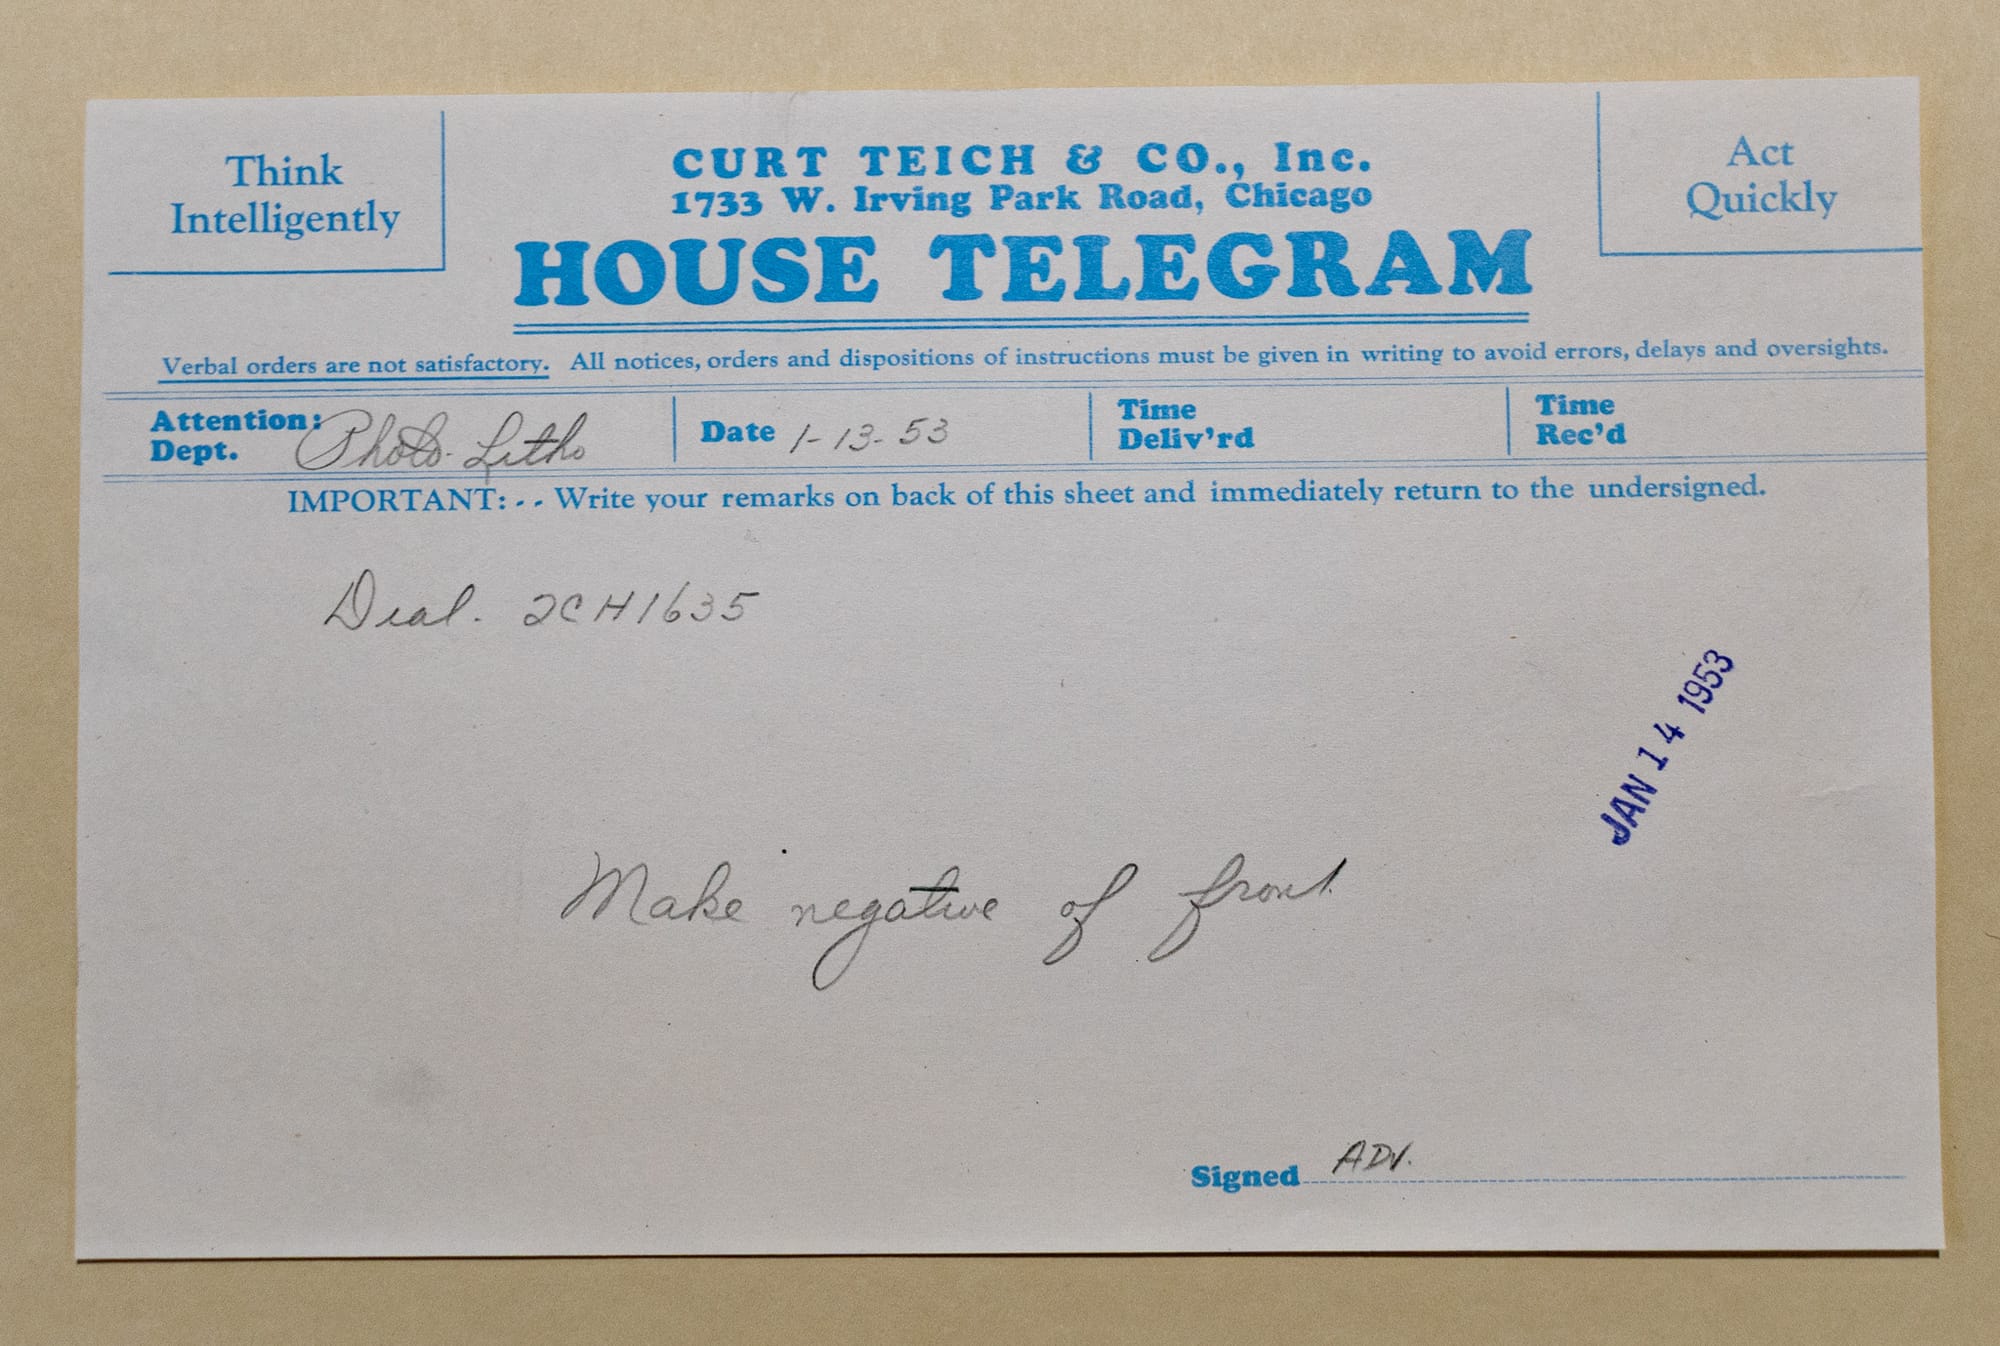 Think
Intelligently
CURT TEICH & CO., Inc.
1733 W. Irving Park Road, Chicago
HOUSE TELEGRAM
Act
Quickly
Verbal orders are not satisfactory. All notices, orders and dispositions of instructions must be given in writing to avoid errors, delays and oversights.
Attention: Dept. Photo-Litho
Date 1-13-53
Time Deliv'rd
Time Rec'd
IMPORTANT: - - Write your remarks on back of this sheet and immediately return to the undersigned.
Deal. 2CH1635
JAN 14 1953
Make negative of front
Signed ADV.